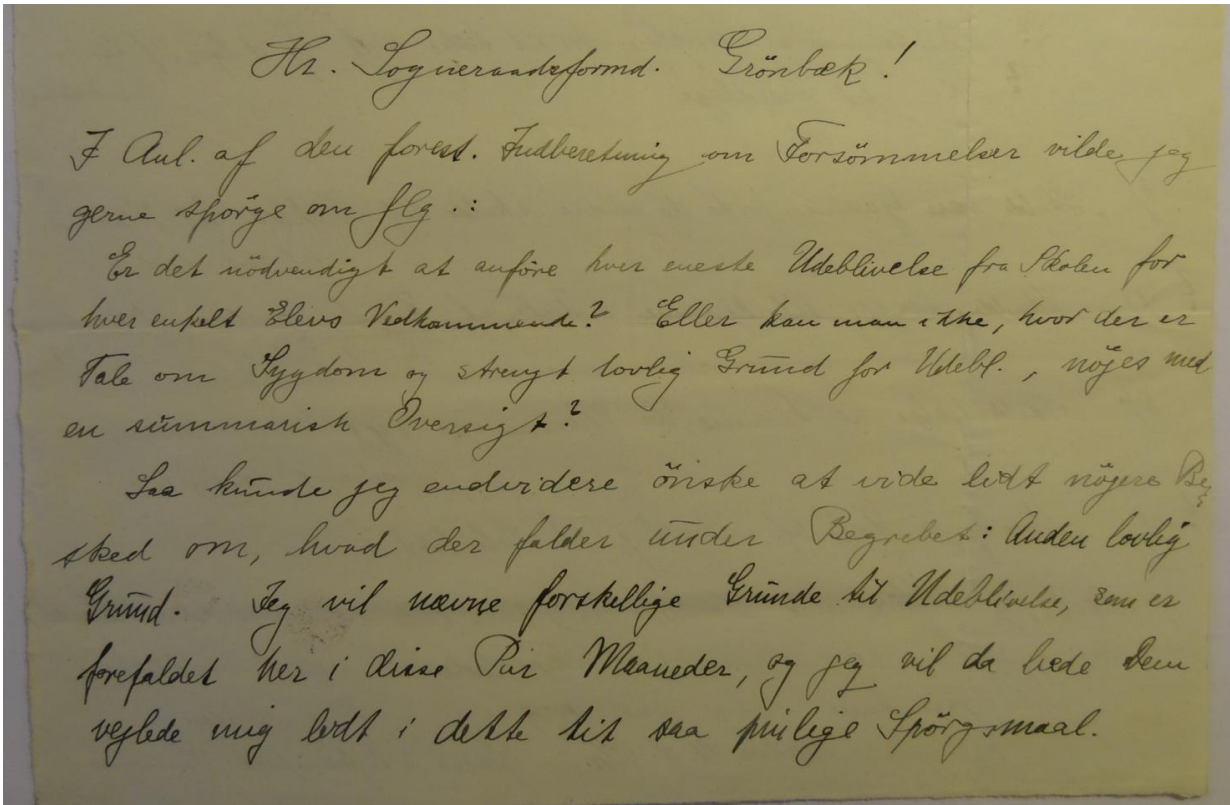 Hr. Sogneraadsformd. Grönbæk!
I Anl. af den forest. Indberetning om Forsömmelser vilde jeg
gerne spörge om flg.:
Er det nödvendigt at anföre hver eneste Udeblivelse fra Skolen for
hver enkelt Elevs Vedkommende? Eller kan man ikke, hvor der er
Tale om Sygdom og strengt lovlig Grund for Udebl., nöjes med
en summarisk Oversigt?
Saa kunde jeg endvidere önske at vide lidt nöjere Be-
sked om, hvad der falder under Begrebet: Anden lovlig
Grund. Jeg vil nævne forskellige Grunde til Udeblivelse, som er
forefaldet her i disse Par Maaneder, og jeg vil da bede Dem
vejlede mig lidt i dette tit saa pinlige Spörgsmaal.